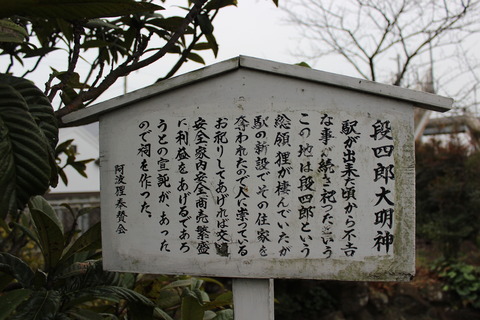 段四郎大明神
駅が出来た頃から不吉
な事が続き祀ったという
この地は段四郎という
総領狸が棲んでいたが
駅の新設でその住家を
奪われたので人に祟っている
お祀りしてあげれば交通
安全家内安全商売繁盛
に利益をあげるであろ
うとの宣託があった
ので祠を作った。
阿波理奉賛会